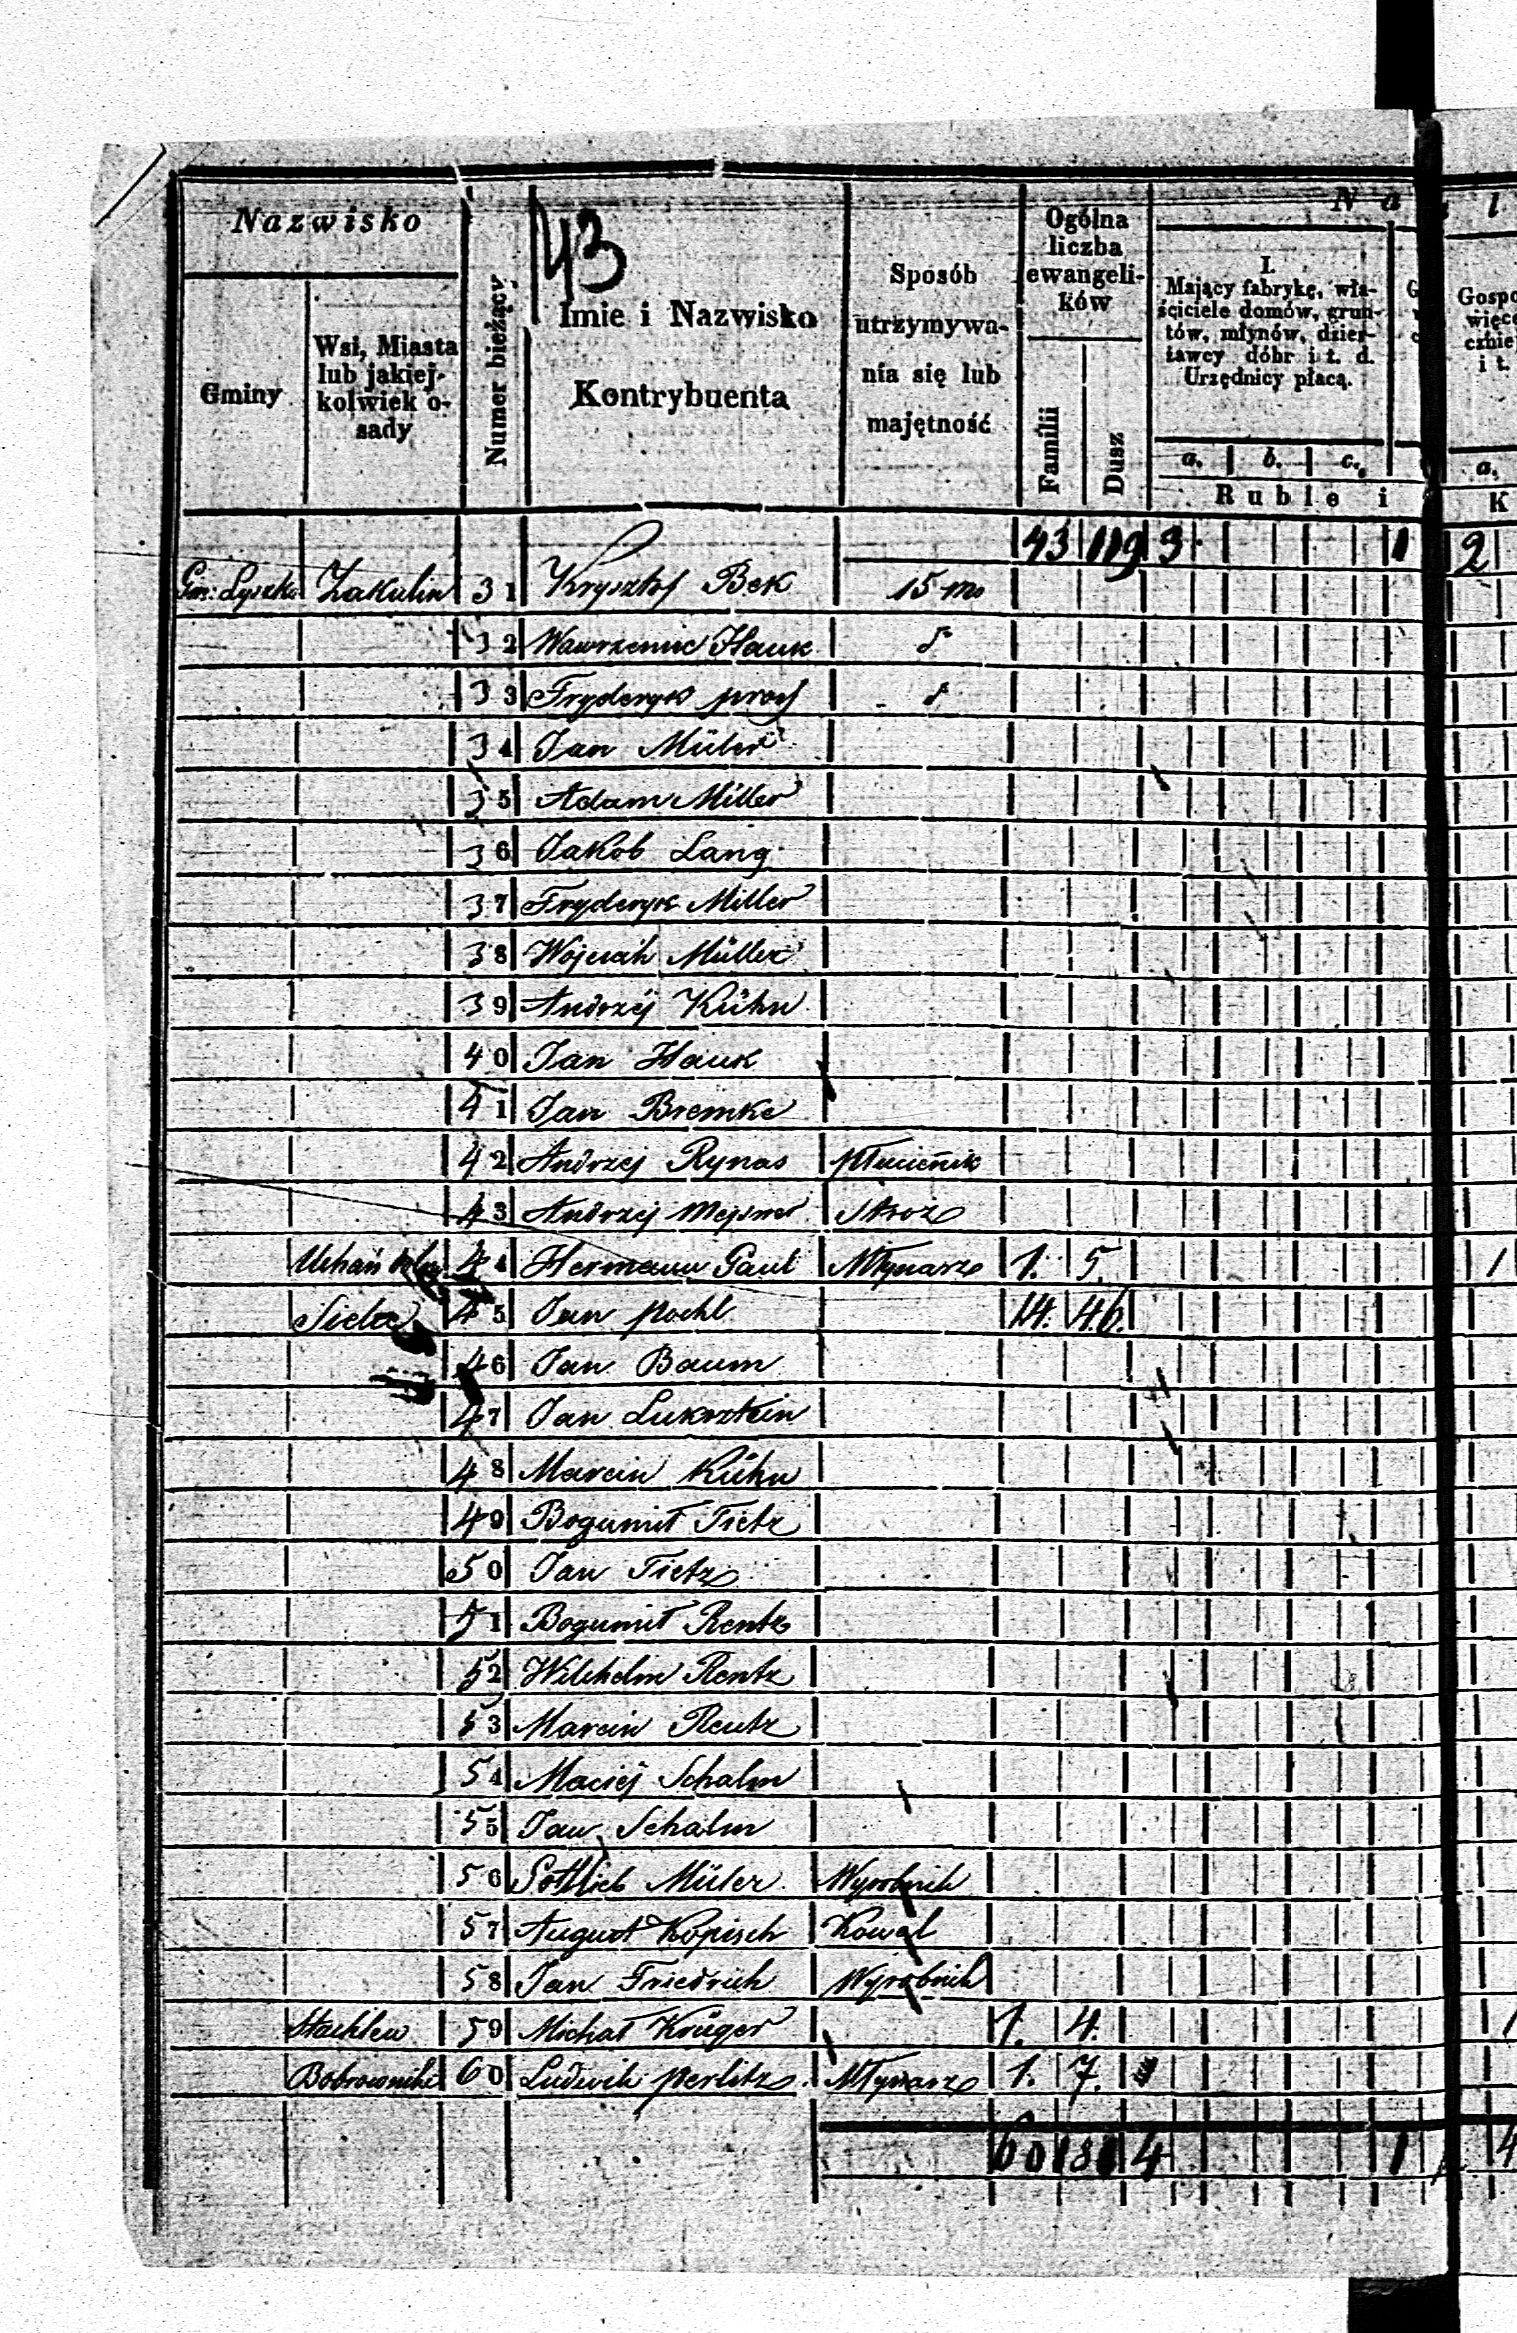 Nazwisko
Gminy
Wsi, Miasta
lub jakiej-
kolwiek o-
sady
Numer bieżący
43
Imie i Nazwisko
Kontrybuenta
Sposób
utrzymywa-
nia się lub
majętność
Ogólna
liczba
ewangeli-
ków
Familii
Dusz
N a l
I.
Mający fabrykę, wła-
ściciele domów, grun-
tów, młynów, dzier-
żawcy dóbr i t. d.
Urzędnicy płacą.
a. b. c.
Ruble i K
Gospo
więce
i t.
a.
43 119 3 1 2
Zakulin 31 Krysztof Bek 15 m
32 Wawrzeniec Hauk
33 Fryderyk
34 Jan Müler
35 Adam Miller
36 Jakob Lang
37 Fryderyk Miller
38 Wojciech Müller
39 Andrzéj Kühn
40 Jan Hauk
41 Jan Bremke
42 Andrzej Rynas płuciennik
43 Andrzéj Mejsner Stróż
44 Hermann Paul Młynarz 1. 5. 1
45 Jan Poehl 14. 46.
46 Jan Baum
47 Jan
48 Marcin Kühn
49 Bogumił Tietz
50 Jan Tietz
51 Bogumił Rentz
52 Wilhelm Rentz
53 Marcin Rentz
54 Maciéj Schalm
55 Jan Schalm
56 Gottlieb Müler Wyrobnik
57 August Kopisch Kowal
58 Jan Friedrich Wyrobnik
59 Michał Krüger 1. 4. 1
Bobrowniki 60 Ludwik Perlitz Młynarz 1. 7.
60 181 4 1 4